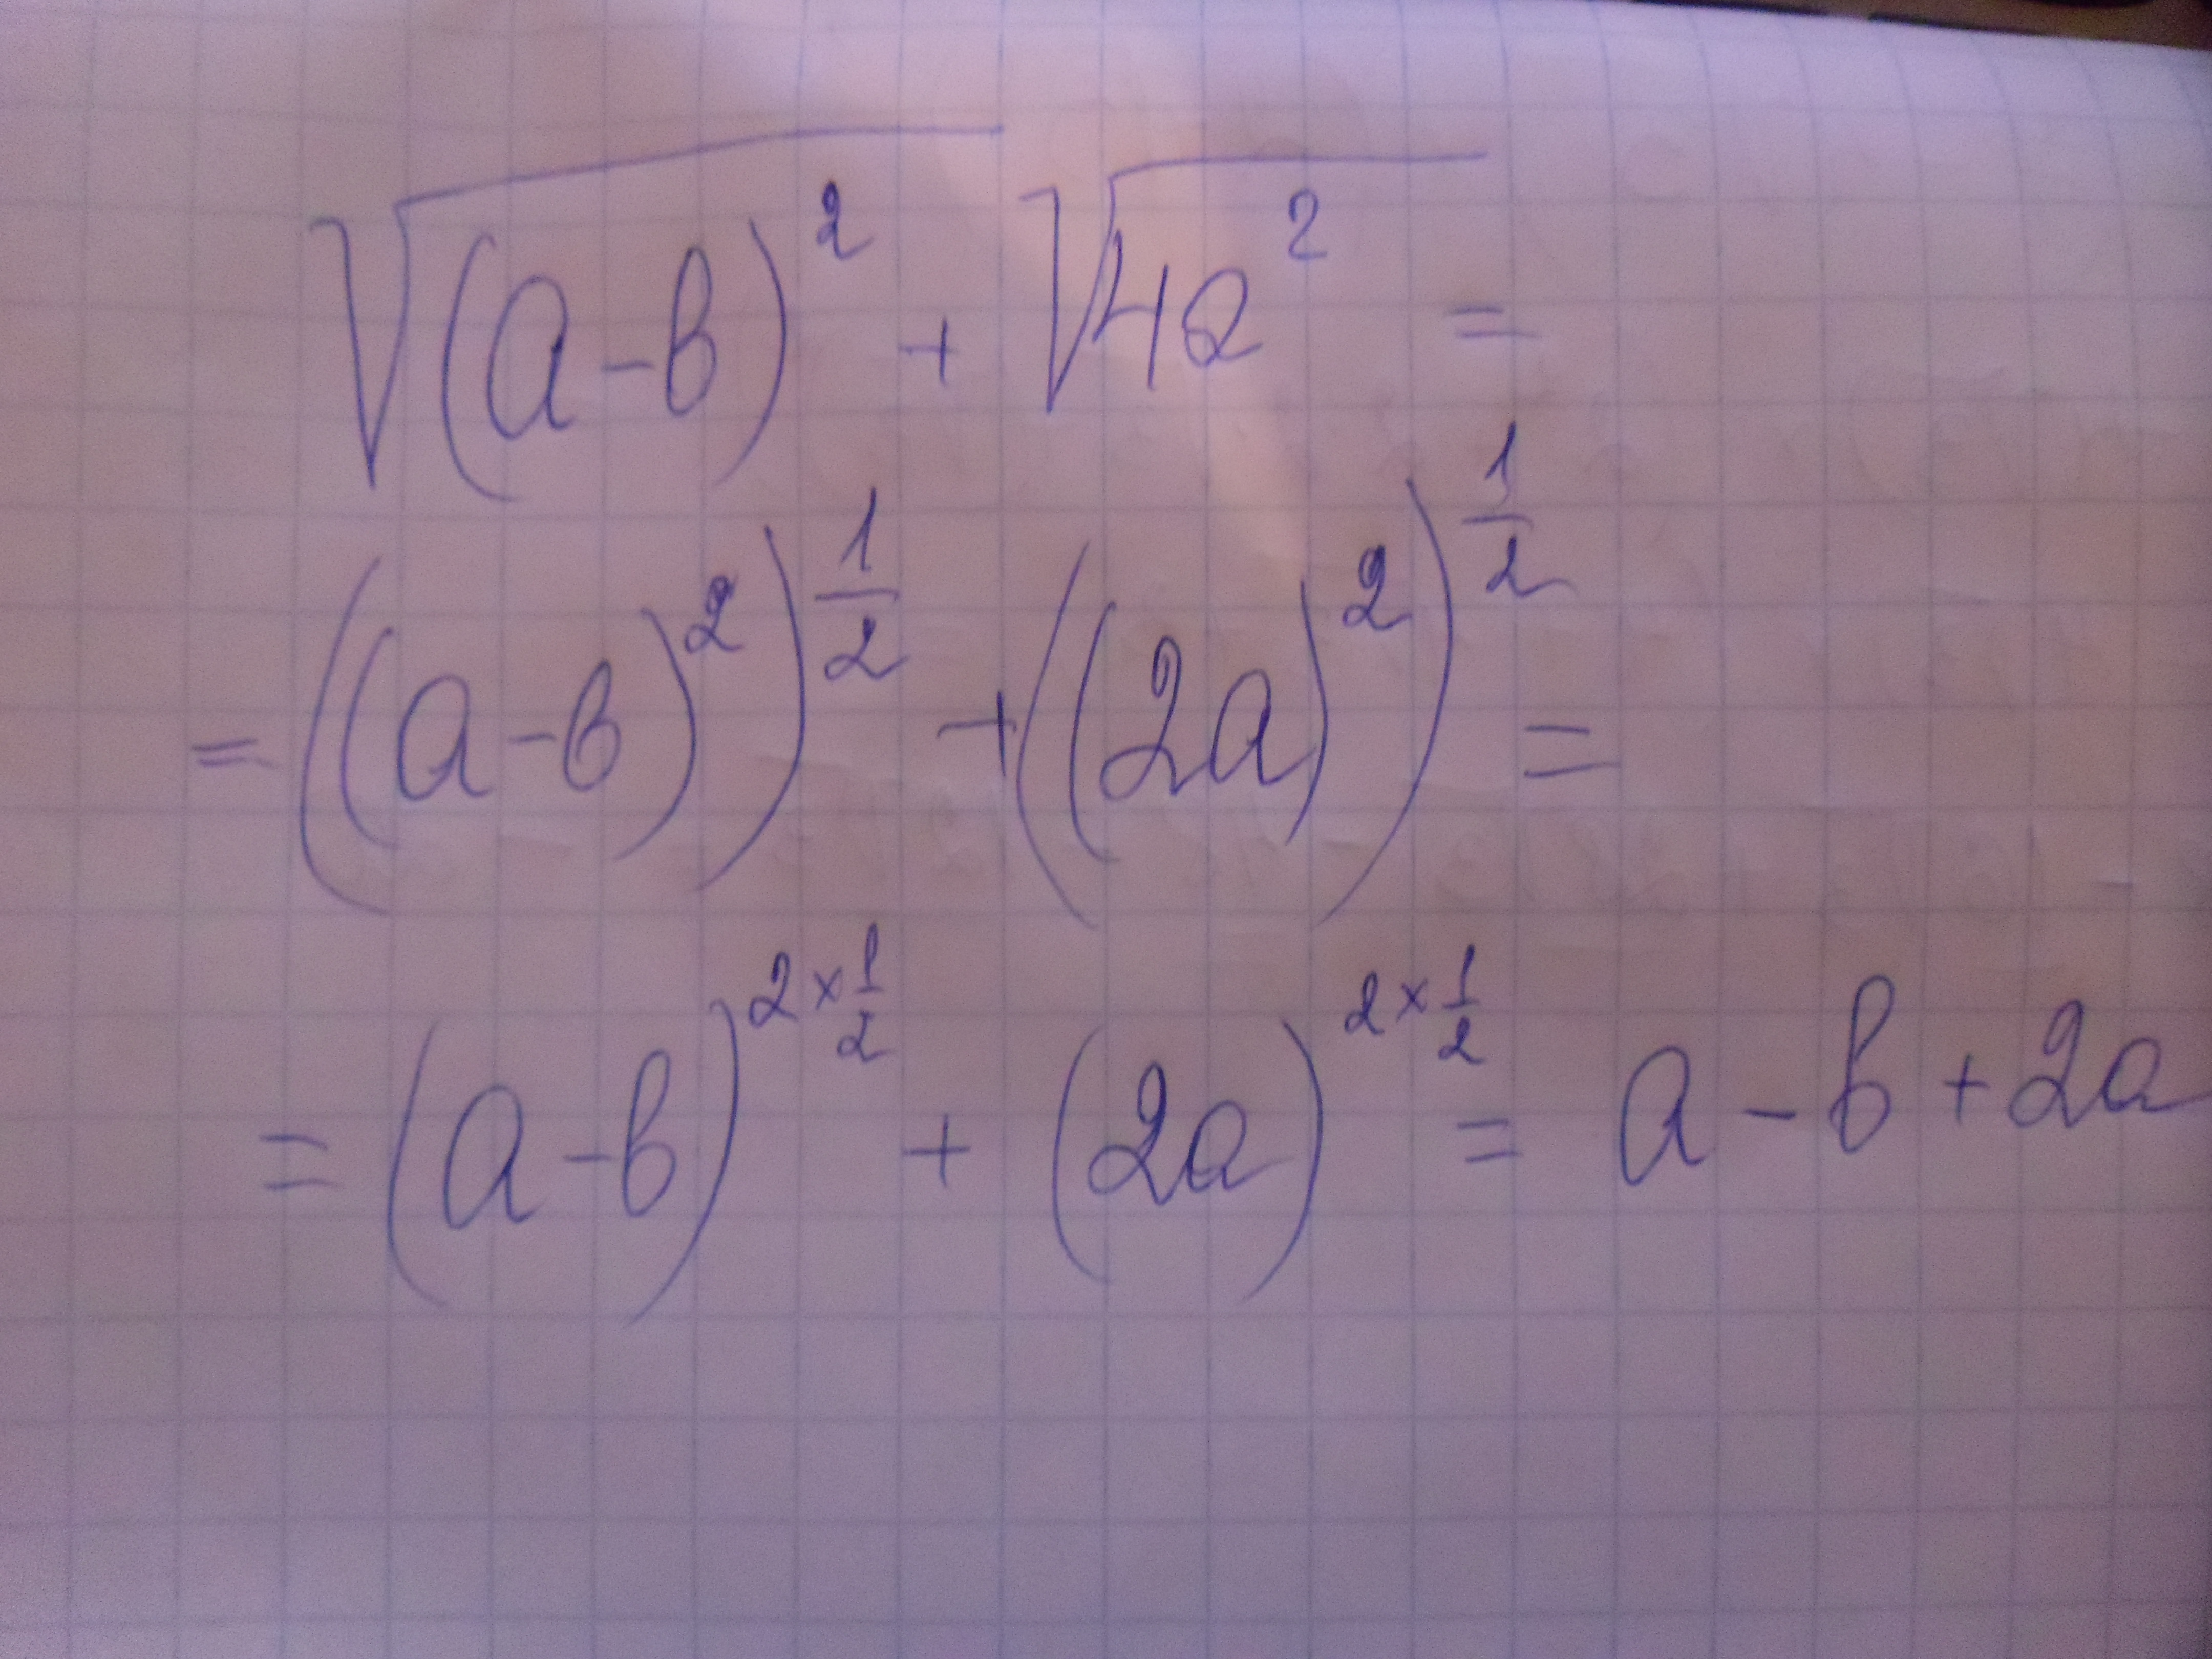 √(a-b)² + √4a² =
= ((a-b)²)^½ + ((2a)²)^½ =
= (a-b)^2×½ + (2a)^2×½ = a - b + 2a